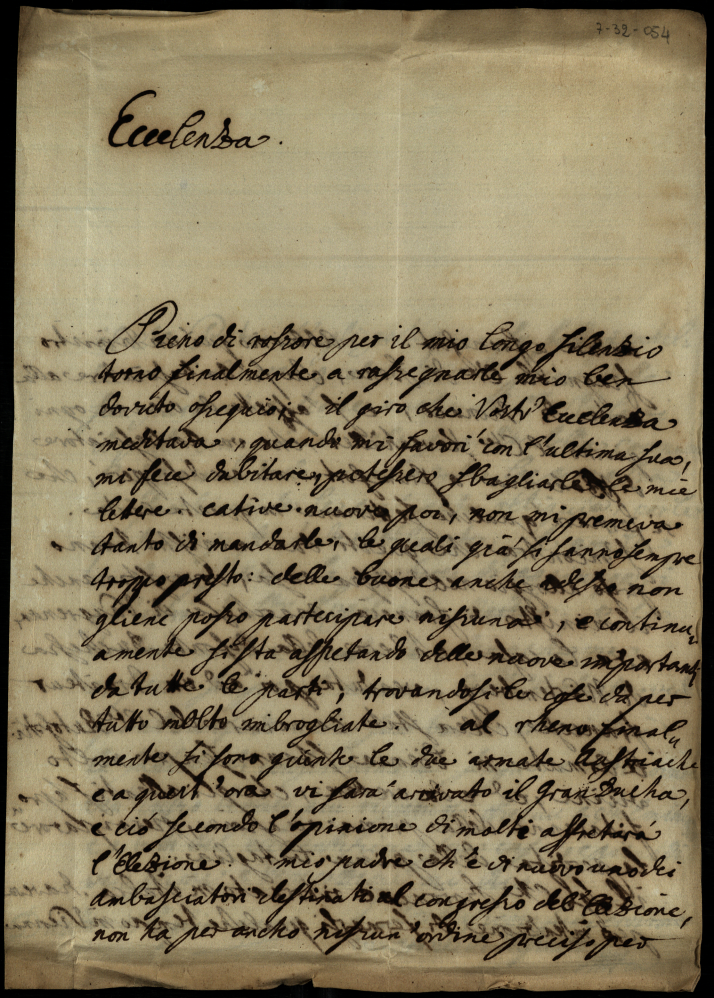 7-32-054
Eccelenza.
Pieno di rossore per il mio longo silenzio
torno finalmente a rassegnarle mio ben
dovuto ossequio; il giro che Vostr' Eccelenza
meditava, quando mi favorì con l'ultima sua,
mi fece dubitare, potessero sbagliarle le mie
lettere. cative nuove poi, non mi premeva
tanto di mandarle, le quali già si sanno sempre
troppo presto: delle buone anche adesso non
gliene posso partecipare nissuna, e continu-
amente si sta aspetando delle nuove importanti
da tutte le parti, trovandosi le cose da per
tutto molto imbrogliate. al rheno final-
mente si sono giunte le due armate Austriache
e a quest'ora vi sarà arrivato il Gran Ducha,
e ciò secondo l'opinione di molti affretirà
l'Elezione. mio padre ch'è di nuovo uno dei
ambasciatori destinati al congresso dell'Elezione,
non ha per ancho nissun'ordine preciso per